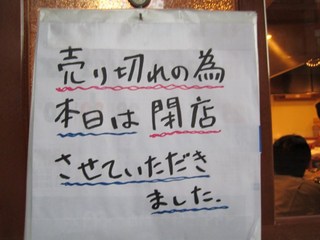 売り切れの為
本日は閉店
させていただき
ました.